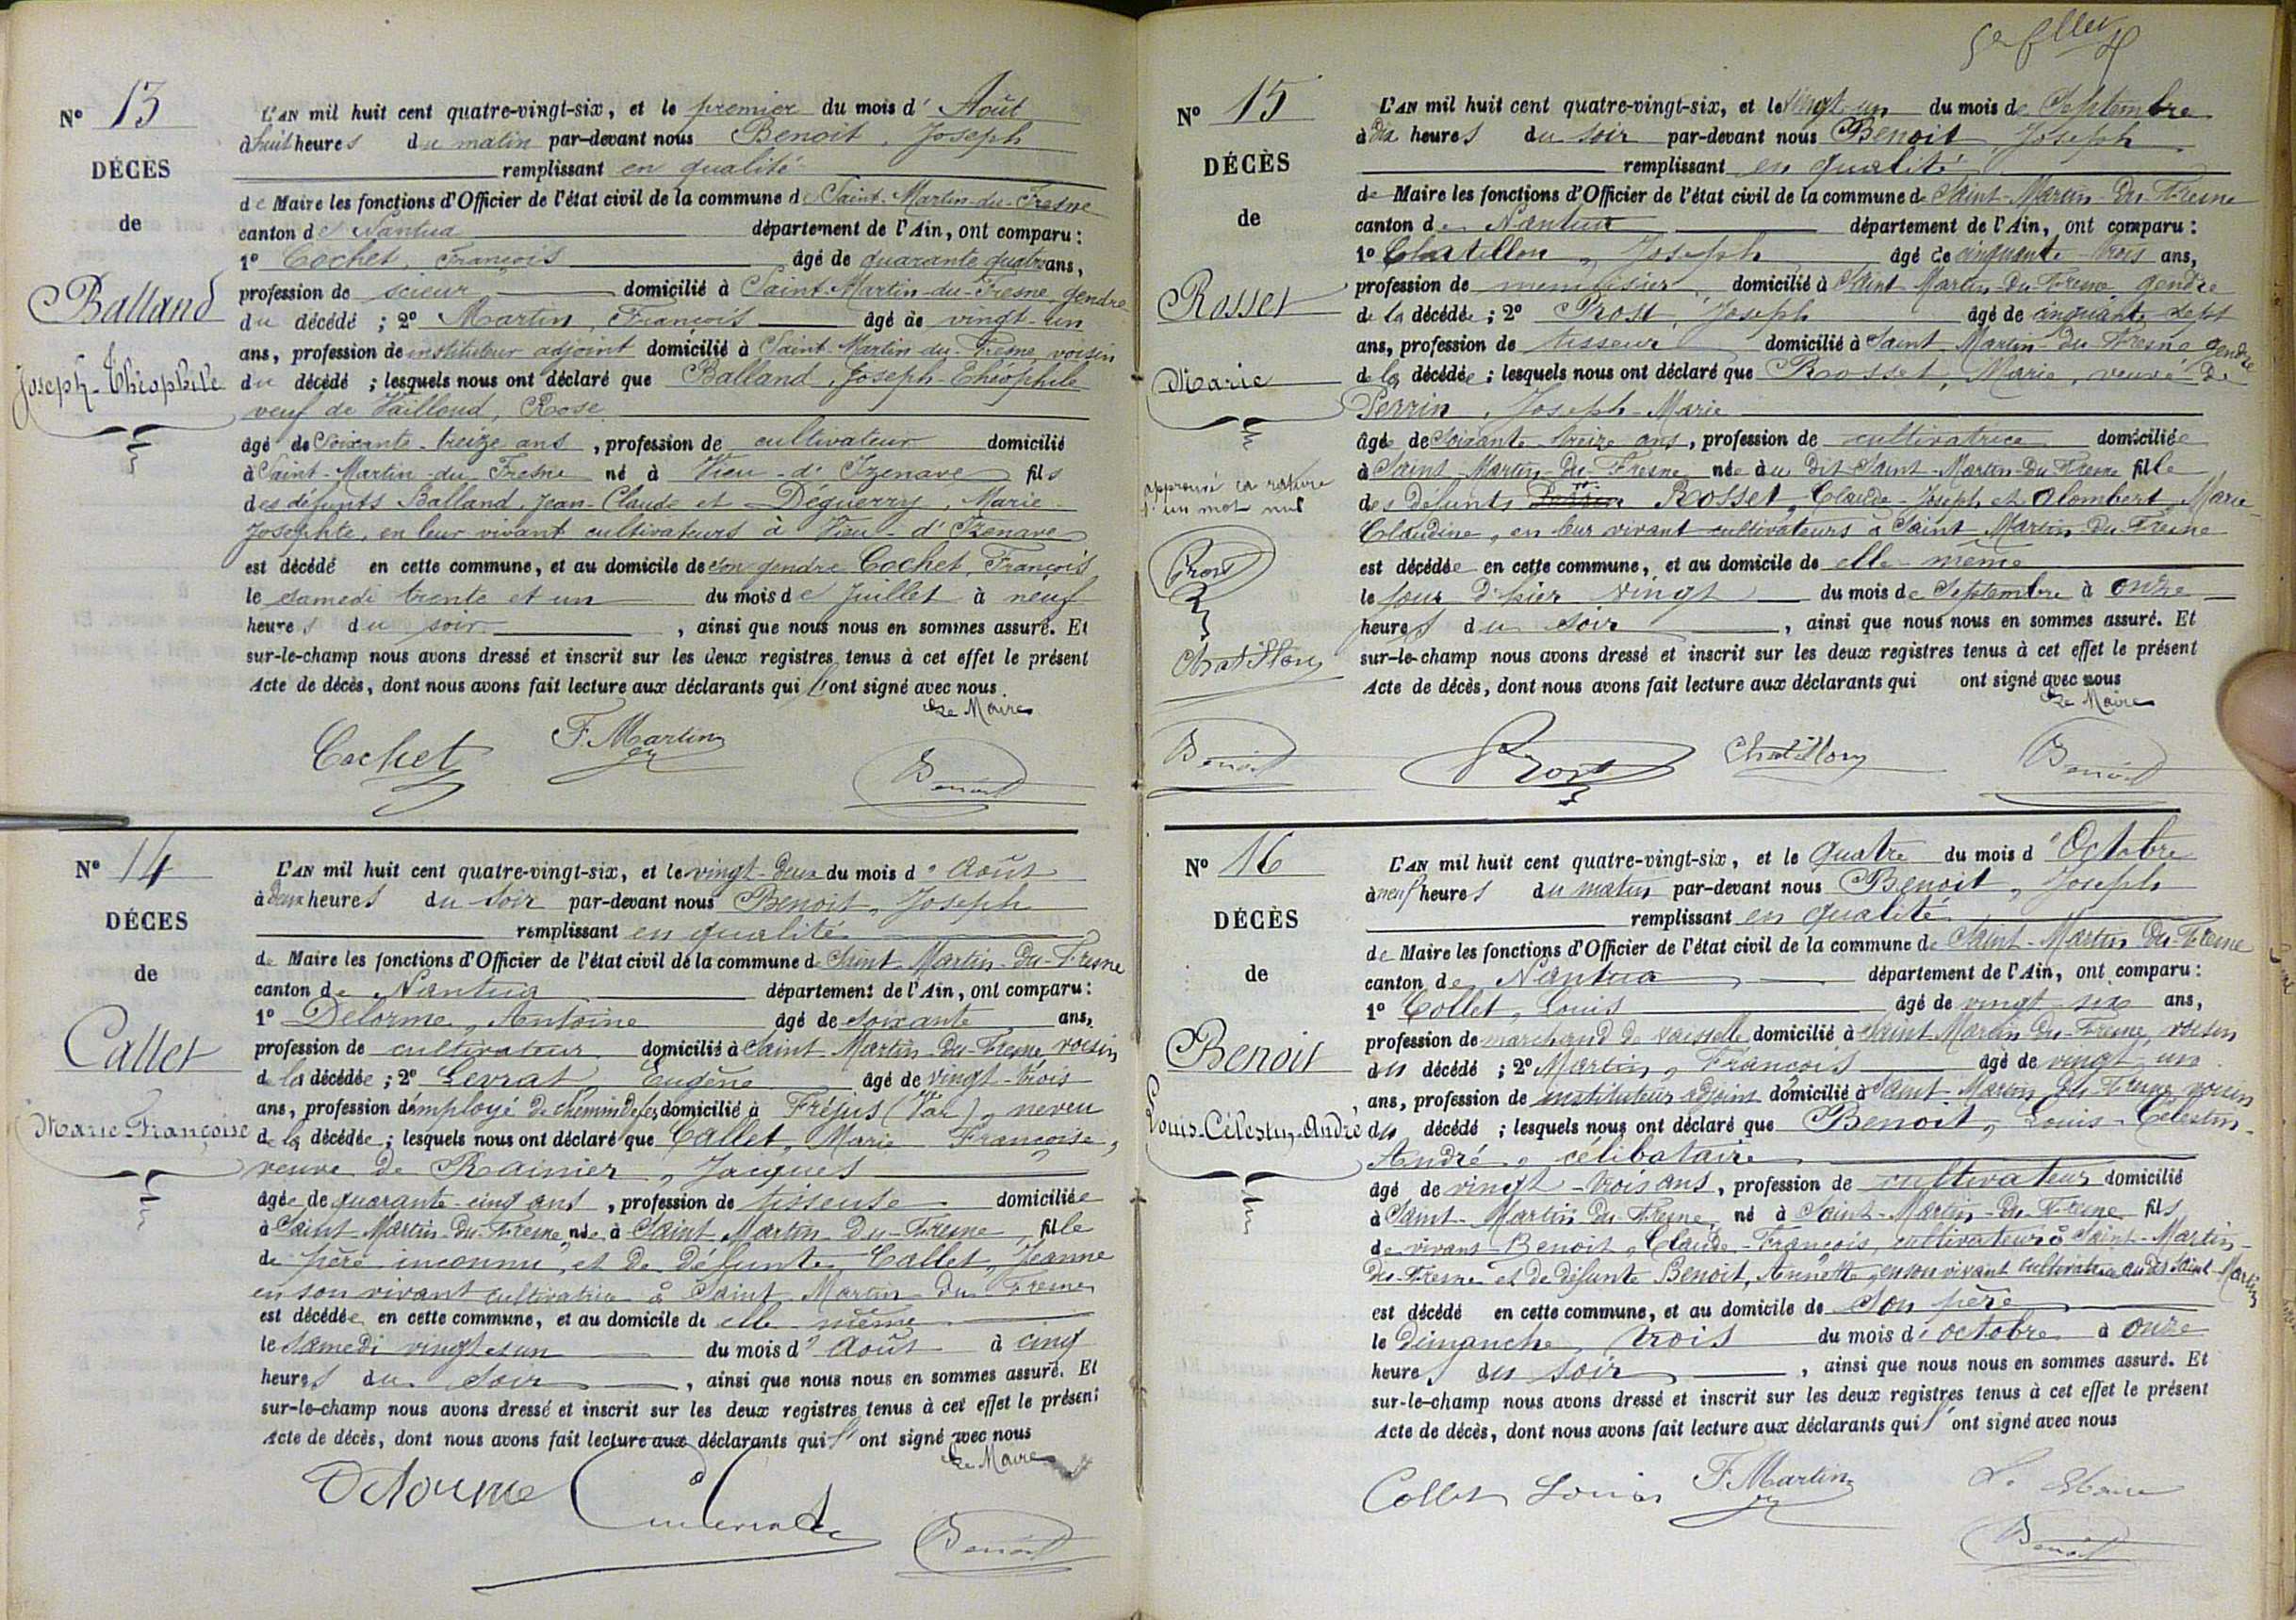 N° 13
DÉCÈS
de
Balland
Joseph-Théophile
L'AN mil huit cent quatre-vingt-six, et le premier du mois d'Août
à huit heures du matin par-devant nous Benoit, Joseph
remplissant en qualité
de Maire les fonctions d'Officier de l'état civil de la commune de Saint-Martin-du-Fresne
canton de Nantua département de l'Ain, ont comparu :
1° Cochet, François âgé de quarante quatre ans,
profession de scieur domicilié à Saint-Martin-du-Fresne, gendre
du décédé ; 2° Martin, François âgé de vingt-un
ans, profession de instituteur adjoint domicilié à Saint-Martin-du-Fresne, voisin
du décédé ; lesquels nous ont déclaré que Balland, Joseph-Théophile
veuf de Vailloud, Rose
âgé de soixante-treize ans, profession de cultivateur domicilié
à Saint-Martin-du-Fresne né à Vieu-d'Izenave fils
des défunts Balland, Jean-Claude et Déguerry, Marie-
Josephte, en leur vivant cultivateurs à Vieu-d'Izenave
est décédé en cette commune, et au domicile de son gendre Cochet, François
le samedi trente et un du mois de Juillet à neuf
heures du soir, ainsi que nous nous en sommes assuré. Et
sur-le-champ nous avons dressé et inscrit sur les deux registres tenus à cet effet le présent
Acte de décès, dont nous avons fait lecture aux déclarants qui l'ont signé avec nous.
Le Maire
Cochet F. Martin
Benoit
N° 14
DÉCÈS
de
Callet
Marie-Françoise
L'AN mil huit cent quatre-vingt-six, et le vingt-deux du mois d'Août
à deux heures du soir par-devant nous Benoit, Joseph
remplissant en qualité
de Maire les fonctions d'Officier de l'état civil de la commune de Saint-Martin-du-Fresne
canton de Nantua département de l'Ain, ont comparu :
1° Delorme, Antoine âgé de soixante ans,
profession de cultivateur domicilié à Saint-Martin-du-Fresne, voisin
de la décédée ; 2° Levrat, Eugène âgé de vingt-trois
ans, profession d'employé de chemin de fer, domicilié à Fréjus (Var), neveu
de la décédée ; lesquels nous ont déclaré que Callet, Marie Françoise,
veuve de Rainier, Jacques
âgée de quarante-cinq ans, profession de tisseuse domiciliée
à Saint-Martin-du-Fresne, née à Saint-Martin-Du-Fresne, fille
de père inconnu et de défunte Callet, Jeanne
en son vivant cultivatrice à Saint-Martin-du-Fresne
est décédée en cette commune, et au domicile de elle-même
le samedi vingt et un du mois d'Août à cinq
heures du soir, ainsi que nous nous en sommes assuré. Et
sur-le-champ nous avons dressé et inscrit sur les deux registres tenus à cet effet le présent
Acte de décès, dont nous avons fait lecture aux déclarants qui l'ont signé avec nous
Le Maire
Delorme
Benoit
N° 15
DÉCÈS
de
Rosset
Marie
approuvé la rature
d'un mot nul
Prost
Chatillon
Benoit
L'AN mil huit cent quatre-vingt-six, et le vingt-un du mois de Septembre
à dix heures du soir par-devant nous Benoit, Joseph
remplissant en qualité
de Maire les fonctions d'Officier de l'état civil de la commune de Saint-Martin-du-Fresne
canton de Nantua département de l'Ain, ont comparu :
1° Chatillon, Joseph âgé de cinquante-trois ans,
profession de menuisier, domicilié à Saint-Martin-Du-Fresne, gendre
de la décédée ; 2° Prost, Joseph âgé de cinquante-sept
ans, profession de tisseur domicilié à Saint-Martin-Du-Fresne gendre
de la décédée ; lesquels nous ont déclaré que Rosset, Marie, veuve de
Perrin, Joseph-Marie
âgée de soixante treize ans, profession de cultivatrice domiciliée
à Saint-Martin-Du-Fresne née au dit Saint-Martin-Du-Fresne fille
des défunts Rosset, Claude-Joseph et Alombert, Marie-
Claudine, en leur vivant cultivateurs à Saint-Martin-Du-Fresne
est décédée en cette commune, et au domicile de elle-même
le jour d'hier vingt du mois de Septembre à onze
heures du soir, ainsi que nous nous en sommes assuré. Et
sur-le-champ nous avons dressé et inscrit sur les deux registres tenus à cet effet le présent
Acte de décès, dont nous avons fait lecture aux déclarants qui ont signé avec nous
Le Maire
Prost Chatillon Benoit
N° 16
DÉCÈS
de
Benoit
Louis-Célestin-André
L'AN mil huit cent quatre-vingt-six, et le quatre du mois d'Octobre
à neuf heures du matin par-devant nous Benoit, Joseph
remplissant en qualité
de Maire les fonctions d'Officier de l'état civil de la commune de Saint-Martin-Du-Fresne
canton de Nantua département de l'Ain, ont comparu :
1° Collet, Louis âgé de vingt-six ans,
profession de marchand de vaisselle domicilié à Saint-Martin-Du-Fresne, voisin
du décédé ; 2° Martin, François âgé de vingt-un
ans, profession de instituteur adjoint domicilié à Saint-Martin-Du-Fresne voisin
du décédé ; lesquels nous ont déclaré que Benoit, Louis-Célestin-
André, célibataire
âgé de vingt-trois ans, profession de cultivateur domicilié
à Saint-Martin-Du-Fresne, né à Saint-Martin-Du-Fresne fils
de vivant Benoit, Claude-François, cultivateur à Saint-Martin-
Du-Fresne et de défunte Benoit, Annette, en son vivant cultivatrice au dit Saint-Martin
est décédé en cette commune, et au domicile de son père
le dimanche trois du mois d'octobre à onze
heures du soir, ainsi que nous nous en sommes assuré. Et
sur-le-champ nous avons dressé et inscrit sur les deux registres tenus à cet effet le présent
Acte de décès, dont nous avons fait lecture aux déclarants qui l'ont signé avec nous
Collet Louis F. Martin Le Maire
Benoit